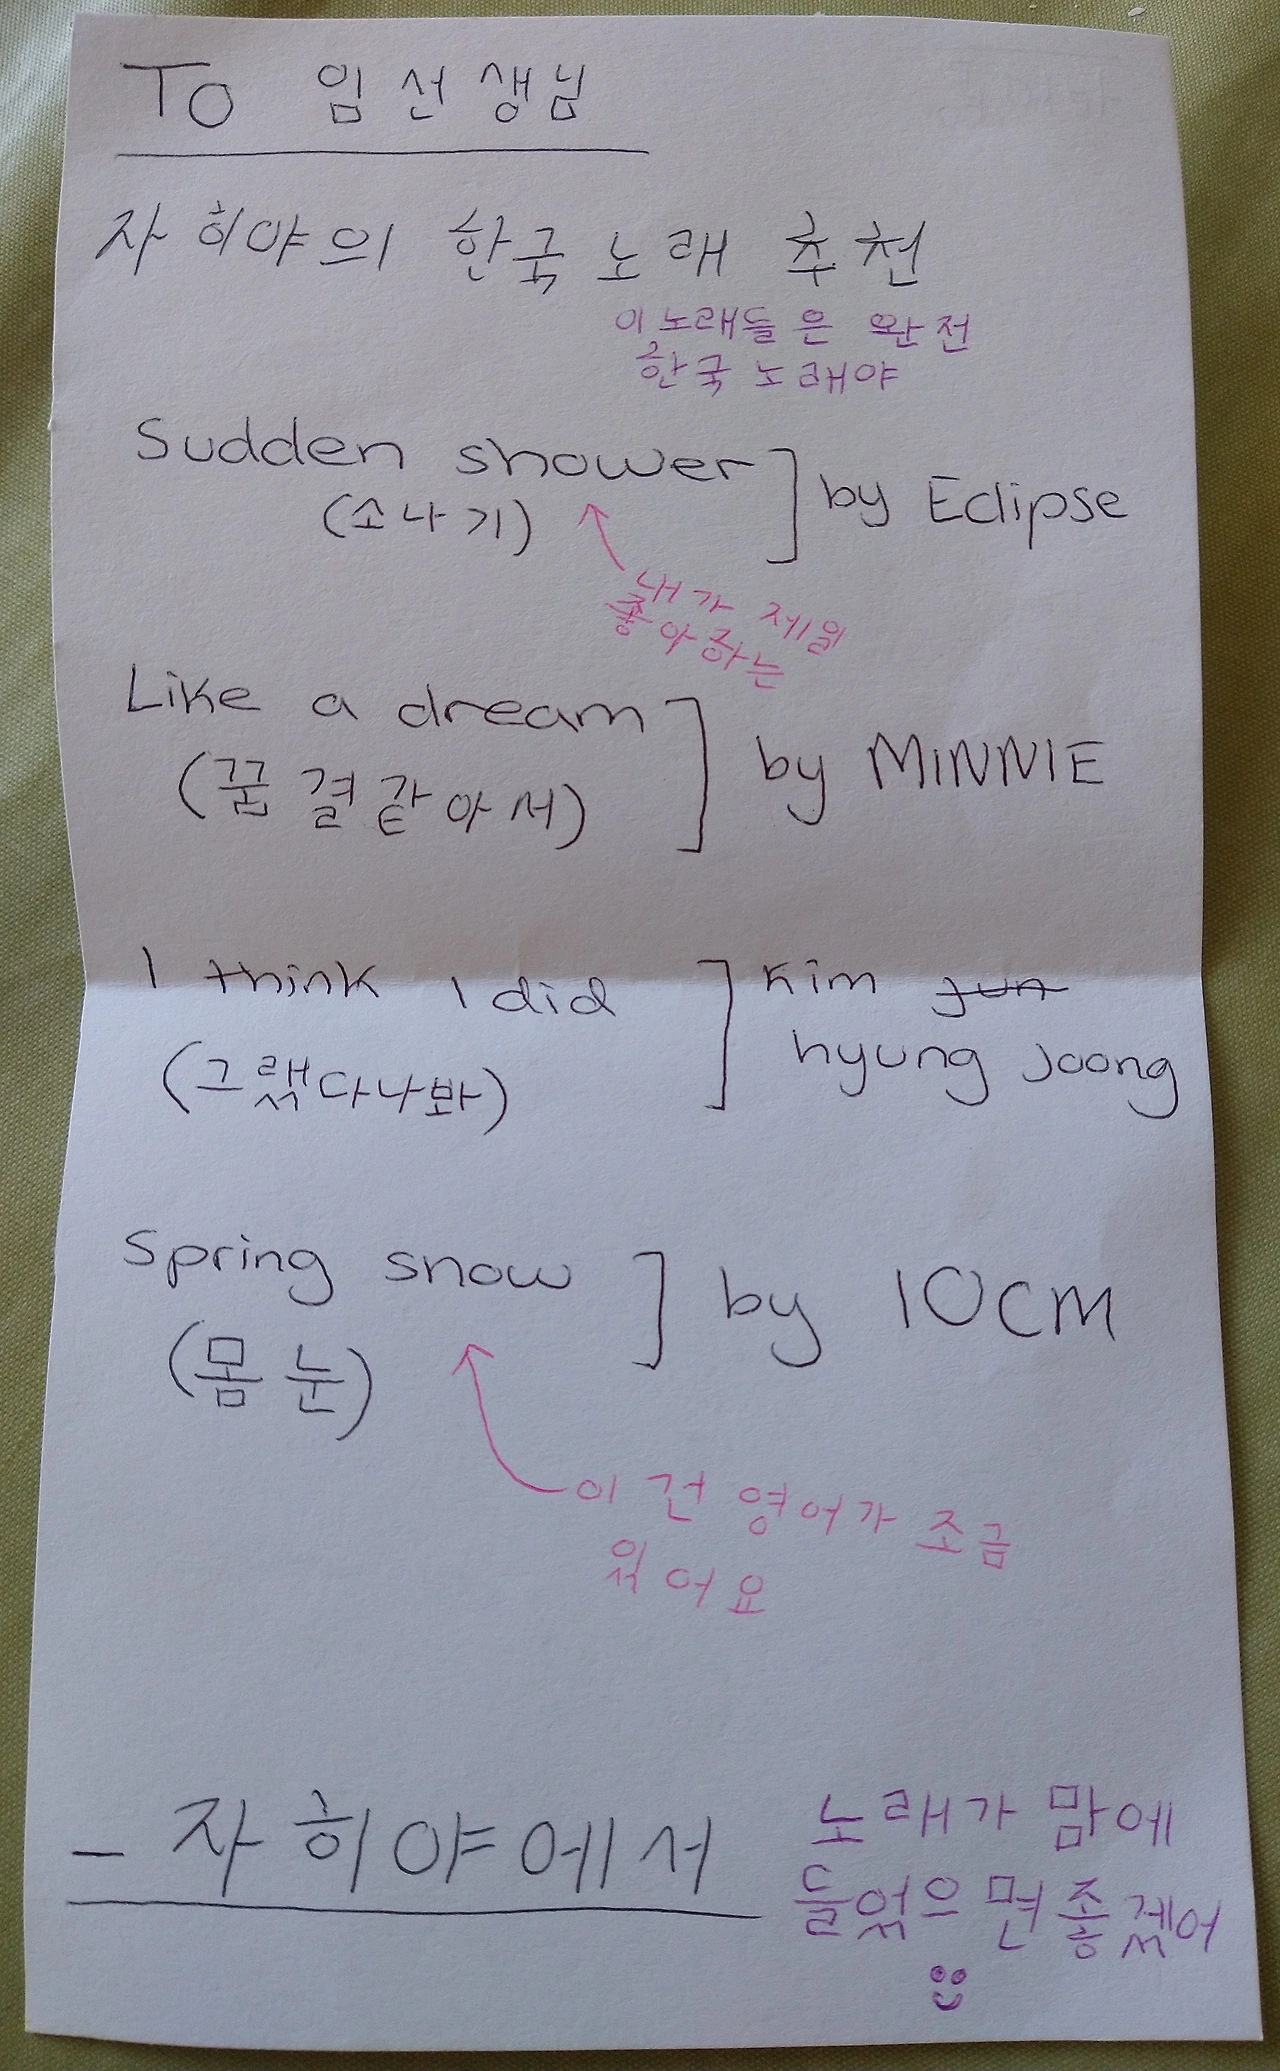 To 임선생님
자히야의 한국노래 추천
이노래들은 완전
한국노래야
Sudden shower
(소나기)
by Eclipse
내가 제일
좋아하는
Like a dream
(꿈결같아서)
by MINNIE
I think I did
(그랬다나봐)
Kim jun
hyung joong
Spring snow
(몸눈)
by 10CM
이건 영어가 조금
있어요
- 자히야에서
노래가 맘에
들었으면 좋겠어